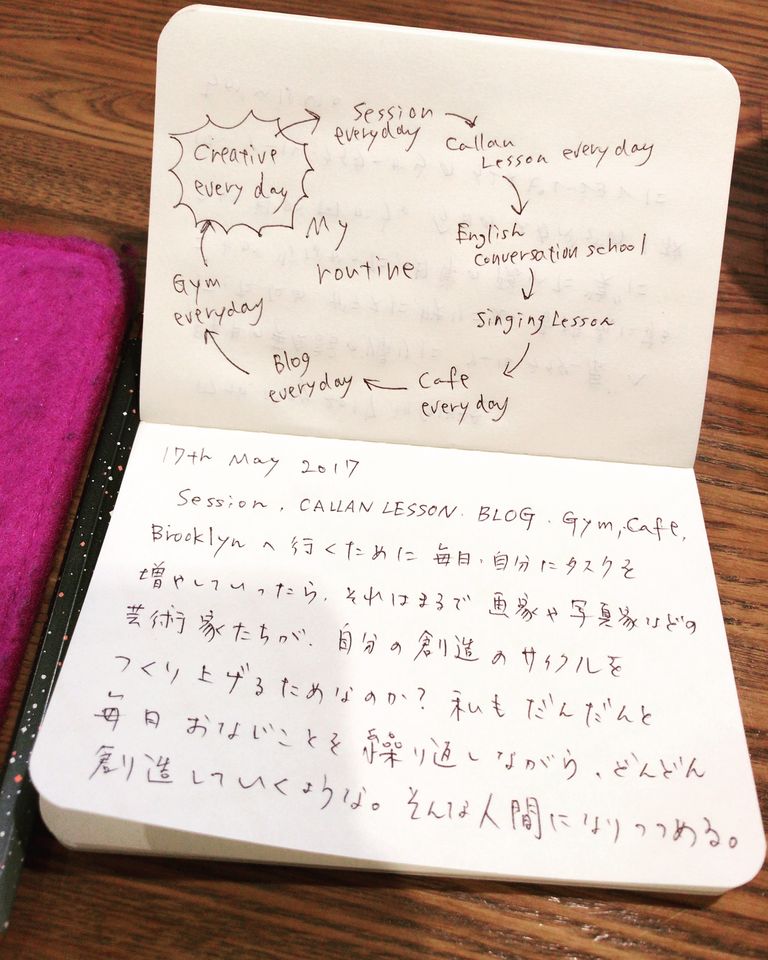 Session
everyday
Callan
Lesson everyday
English
conversation school
Singing Lesson
Cafe
everyday
Blog
everyday
Gym
everyday
Creative
every day
My
routine
17th May 2017
Session, CALLAN LESSON. BLOG. Gym, Cafe,
Brooklynへ行くために毎日、自分にタスクを
増やしていったら、それはまるで画家や写真家などの
芸術家たちが、自分の創造のサイクルを
つくり上げるためなのか？私もだんだんと
毎日おなじことを繰り返しながら、どんどん
創造していくような。そんな人間になりつつある。